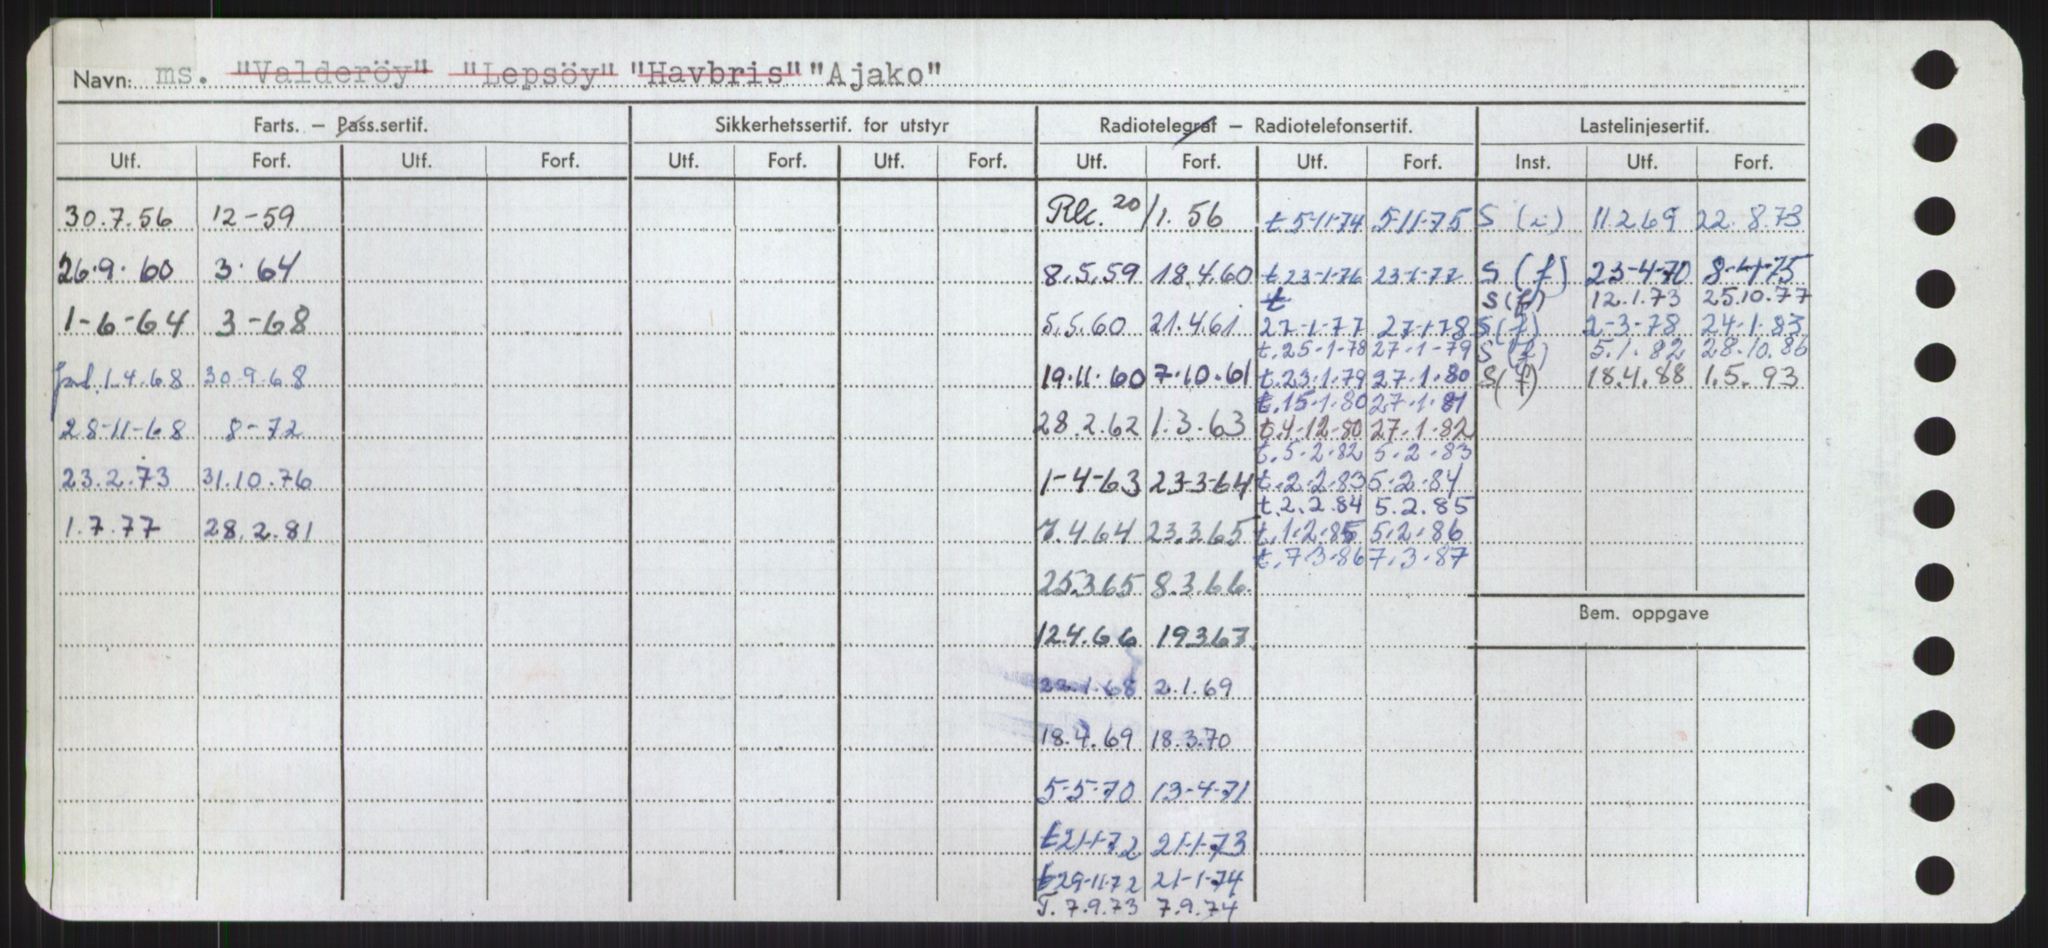 Navn: ms. "Valderöy" "Lepsöy" "Havbris" "Ajako"
Farts. – Pass.sertif. Sikkerhetssertif. for utstyr Radiotelegraf – Radiotelefonsertif. Lastelinjesertif.
Utf. Forf. Utf. Forf. Utf. Forf. Utf. Forf. Utf. Forf. Utf. Forf. Inst. Utf. Forf.
30.7.56 12-59 Rk. 20/1.56 t 5-11-74 5-11-75 S (i) 11.2.69 22.8.73
26.9.60 3.64 8.5.59 18.4.60 t 23-1-76 23-1-77 S (f) 23-4-70 8-4-75
t S(f) 12.1.73 25.10.77
1-6-64 3-68 5.5.60 21.4.61 27-1-77 27-1-78 S(f) 2-3-78 24-1-83
t.25-1-78 27-1-79 S(f) 5.1.82 28.10.86
1.4.68 30.9.68 19.11.60 7.10.61 t.23.1.79 27.1.80 S(f) 18.4.88 1.5.93
t.15.1.80 27.1.81
28-11-68 8-72 28.2.62 1.3.63 t.4-12-80 27.1.82
t.5.2.82 5.2.83
23.2.73 31.10.76 1-4-63 23-3-64 t.2.2.83 5.2.84
t.2.2.84 5.2.85
1.7.77 28.2.81 7.4.64 23.3.65 t.1.2.85 5.2.86
t.7.3.86 7.3.87
25.3.65 8.3.66
Bem. oppgave
12.4.66 19.3.67
22.1.68 2.1.69
18.4.69 18.3.70
5-5-70 13-4-71
t 21-1-72 21-1-73
t 29-11-72 21-1-74
T. 7.9.73 7.9.74